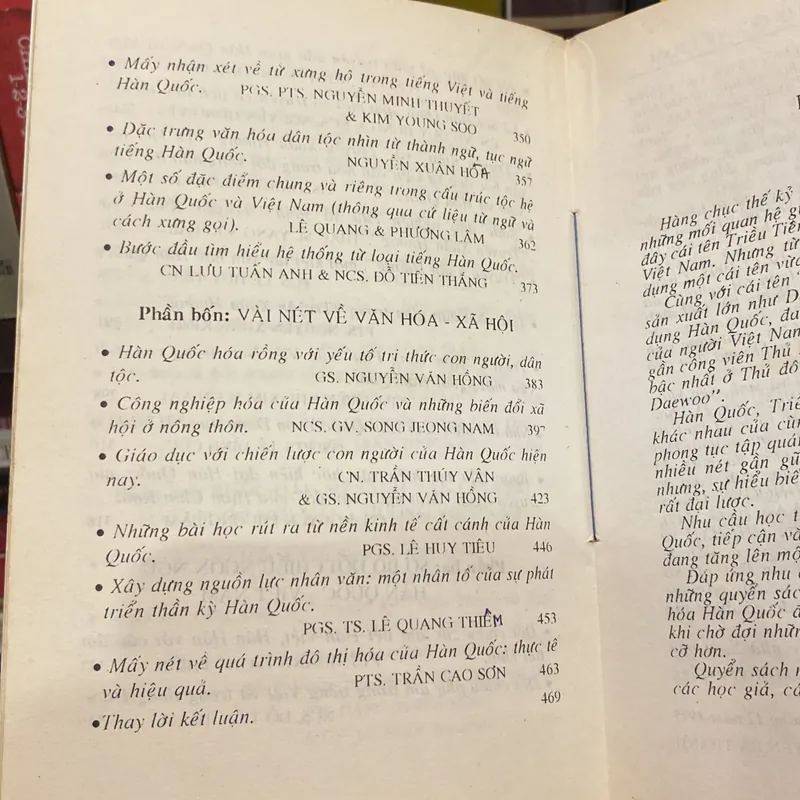 • Mấy nhận xét về từ xưng hô trong tiếng Việt và tiếng
Hàn Quốc. PGS. PTS. NGUYỄN MINH THUYẾT
& KIM YOUNG SOO 350
• Đặc trưng văn hóa dân tộc nhìn từ thành ngữ, tục ngữ
tiếng Hàn Quốc. NGUYỄN XUÂN HÒA 357
• Một số đặc điểm chung và riêng trong cấu trúc tộc hệ
ở Hàn Quốc và Việt Nam (thông qua cứ liệu từ ngữ và
cách xưng gọi). LÊ QUANG & PHƯƠNG LÂM 362
• Bước đầu tìm hiểu hệ thống từ loại tiếng Hàn Quốc.
CN LƯU TUẤN ANH & NCS. ĐỖ TIẾN THẮNG 373
Phần bốn: VÀI NÉT VỀ VĂN HÓA - XÃ HỘI
• Hàn Quốc hóa rồng với yếu tố tri thức con người, dân
tộc. GS. NGUYỄN VĂN HỒNG 383
• Công nghiệp hóa của Hàn Quốc và những biến đổi xã
hội ở nông thôn. NCS. GV. SONG JEONG NAM 397
• Giáo dục với chiến lược con người của Hàn Quốc hiện
nay. CN. TRẦN THÚY VÂN
& GS. NGUYỄN VĂN HỒNG 423
• Những bài học rút ra từ nền kinh tế cất cánh của Hàn
Quốc. PGS. LÊ HUY TIÊU 446
• Xây dựng nguồn lực nhân văn: một nhân tố của sự phát
triển thần kỳ Hàn Quốc.
PGS. TS. LÊ QUANG THIÊM 453
• Mấy nét về quá trình đô thị hóa của Hàn Quốc: thực tế
và hiệu quả. PTS. TRẦN CAO SƠN 463
•Thay lời kết luận. 469
Hàng chục thế kỷ
những mối quan hệ gi
đây cái tên Triều Tiên
Việt Nam. Nhưng từ
dụng một cái tên vừa
Cùng với cái tên
sản xuất lớn như D
dụng Hàn Quốc, đa
của người Việt Nam
gần công viên Thủ
bậc nhất ở Thủ đô
Daewoo".
Hàn Quốc, Triề
khác nhau của cùn
phong tục tập quán
nhiều nét gần gũ
nhưng, sự hiểu biế
rất đại lược.
Nhu cầu học t
Quốc, tiếp cận và
đang tăng lên mộ
Đáp ứng nhu c
những quyển sác
hóa Hàn Quốc đ
khi chờ đợi nhữn
cỡ hơn.
Quyển sách n
các học giả, cá